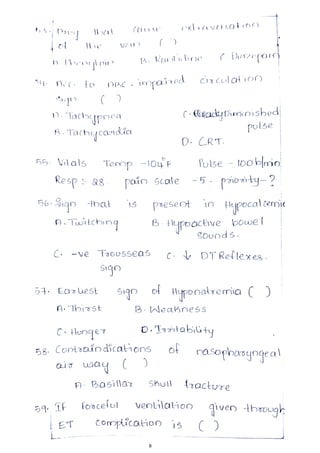 53. Drug that cause extravasation
of the vein ( )
B. Ranitidine C. Diazepam
54. Acc. to ABC. impaired circulation
sign ( )
A. Tachypnea C. Ready Diminished
pulse
B. Tachycardia
D. CRT.
55. Vitals Temp -104°F Pulse - 100b/min
Resp: 28. pain scale -5 - priority-?
56. Sign that is present in Hypocalcemia
A. Twitching B. Hypoactive bowel
Sounds.
C. -ve Trousseas C. ↓ DT Reflexes.
Sign
57. Earliest sign of Hyponatremia ( )
A. Thirst B. Weakness
C. Hunger D. Irritability
58. Contraindications of nasopharyngeal
air way ( )
A. Basillar Skull fracture
59. If forceful ventilation given through
ET complication is ( )
8